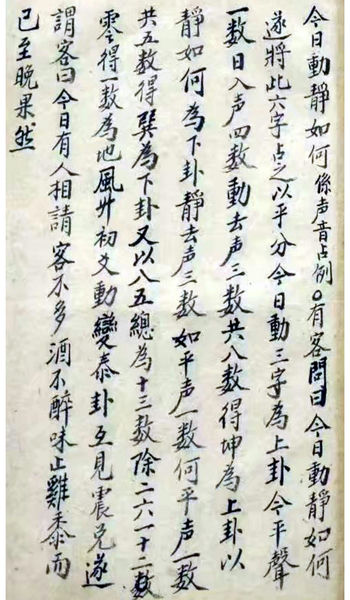 今日動靜如何係声音占例。有客問曰今日動靜如何
遂將此六字占之以平分今日動三字為上卦今平聲
一数日入声四数動去声三数共八数得坤為上卦以
靜如何為下卦靜去声三数如平声一数何平声一数
共五数得巽為下卦又以八五總為十三数除二六一十二数
零得一数為地風升初爻動變泰卦互見震兑遂
謂客曰今日有人相請客不多酒不醉味止雞黍而
已至晚果然